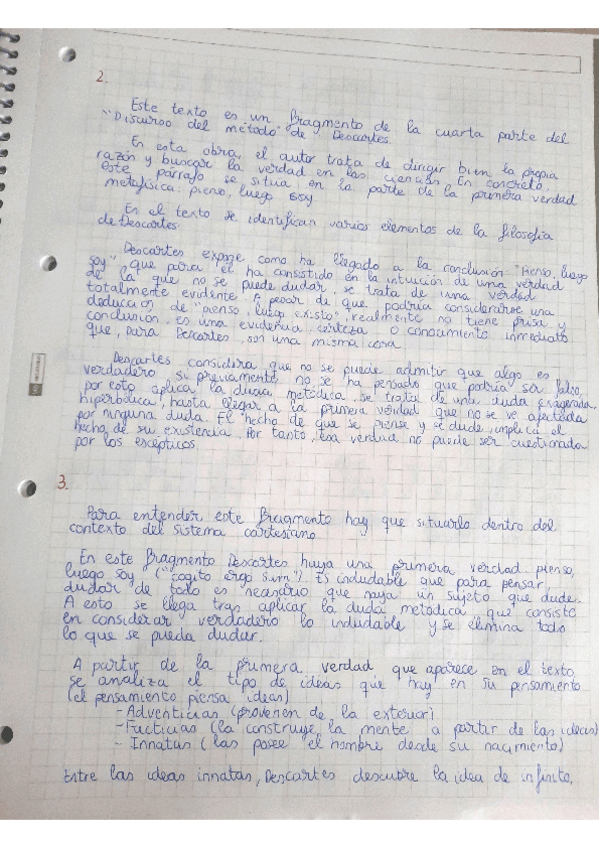 2.
Este texto es un fragmento de la cuarta parte del
"Discurso del método" de Descartes.
En esta obra, el autor trata de dirigir bien la propia
razón y buscar la verdad en las ciencias. En concreto,
este párrafo se situa, en la parte de la primera verdad
metafísica: pienso, luego soy
En el texto se identifican varios elementos de la filosofía
de Descartes.
Descartes expone como ha llegado a la conclusión "Pienso, luego
soy", que para él ha consistido en la intuición de una verdad
de la que no se puede dudar, se trata de una verdad
totalmente evidente. A pesar de que podría considerarse una
deducción de "pienso, luego existo", realmente no tiene y
conclusión, es una evidencia, certeza o conocimiento inmediato
que, para Descartes, son una misma cosa.
Descartes considera que no se puede admitir que algo es
verdadero, si previamente no se ha pensado que podría ser falso,
por esto aplica, la duda metódica, se trata de una duda exagerada,
hiperbólica, hasta llegar a la primera verdad que no se ve afectada
por ninguna duda. El hecho de que se piense y se dude, implica el
hecho de su existencia. Por tanto, esa verdad no puede ser cuestionada
por los escépticos.
3.
Para entender este fragmento hay que situarlo dentro del
contexto del sistema cartesiano.
En este fragmento Descartes haya una primera verdad: pienso,
luego soy ("cogito ergo sum"). Es indudable que para pensar,
dudar de todo es necesario que haya un sujeto que dude.
A esto se llega tras aplicar la duda metódica que consiste
en considerar verdadero lo indudable y se elimina todo
lo que se pueda dudar.
A partir de la primera verdad que aparece en el texto
se analiza el tipo de ideas que hay en su pensamiento
(el pensamiento piensa ideas)
- Adventicias (provienen de la exterior)
- Facticias (la construye la mente a partir de las ideas)
- Innatas (las posee el hombre desde su nacimiento)
Entre las ideas innatas, Descartes descubre la idea de infinito,